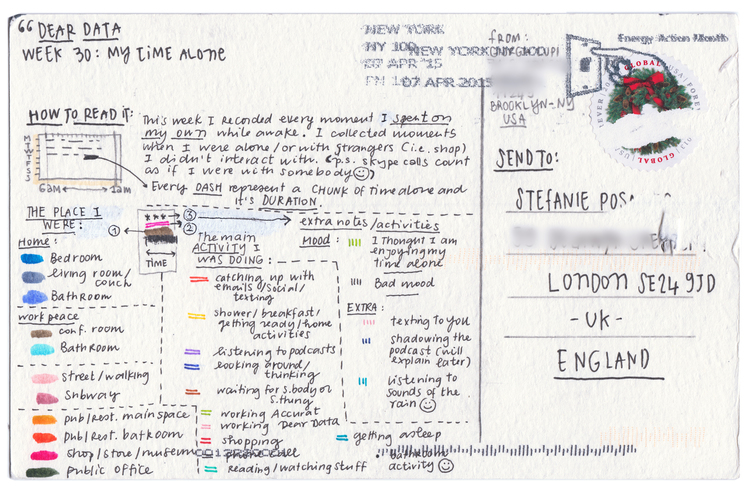 “ DEAR DATA
WEEK 30: MY TIME ALONE
HOW TO READ IT:
M
T
W
T
F
S
S
6AM
1AM
This week I recorded every moment I spent on
my own while awake. I collected moments
when I were alone/or with strangers (i.e. shop)
I didn't interact with. (p.s. skype calls count
as if I were with somebody)
Every DASH represent a CHUNK of time alone and
it's DURATION.
THE PLACE I
WERE:
1
3
2
TIME
Home:
Bedroom
living room/
couch
Bathroom
work peace
conf. room
Bathroom
street/walking
Subway
pub/rest. main space
pub/rest. batroom
shop/store/museum
public office
The main
ACTIVITY I
WAS DOING:
catching up with
emails/social/
texting
shower/breakfast/
getting ready/home
activities
listening to podcasts
looking around/
thinking
waiting for s.body or
s.thing
working Accurat
working Dear Data
shopping
phone call
reading/watching stuff
getting asleep
extra notes/activities
MOOD:
I thought I am
enjoying my
time alone
Bad mood
EXTRA:
texting to you
shadowing the
podcast (will
explain later)
listening to
sounds of the
rain
bathroom
activity
NEW YORK
NY 100
07 APR 2015
Energy Action Month
FROM:
BROOKLYN-NY
USA
GLOBAL
USA
FOREVER
GLOBAL
SEND TO:
STEFANIE POS
LONDON SE24 9JD
-UK-
ENGLAND